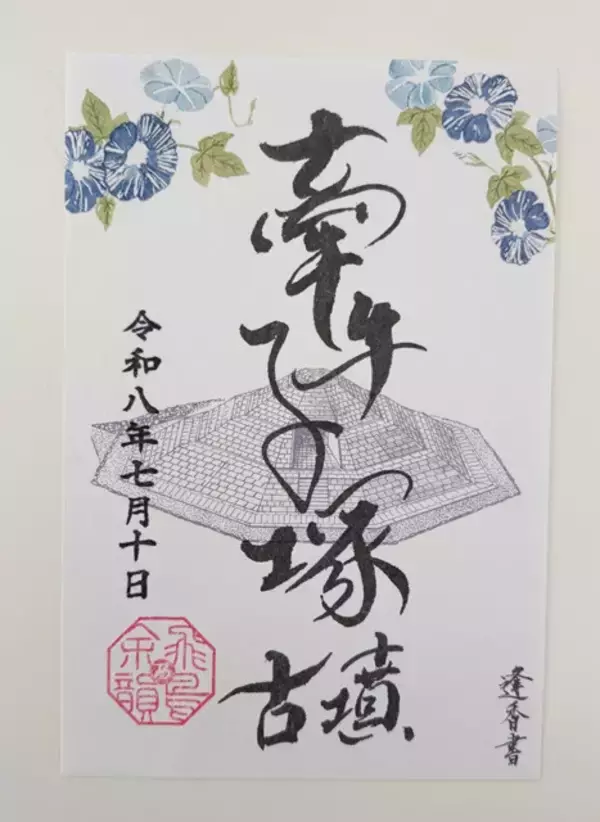 牽牛子塚
古墳
令和八年七月十日
飛鳥
乃
余韻
逢香書